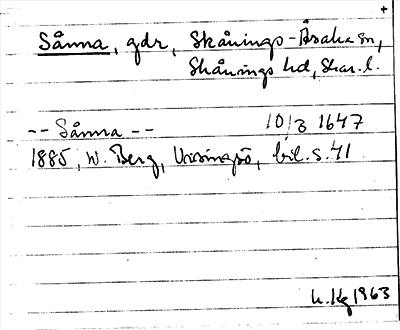 Sånna, gdr, Skånings-Åsaka sn,
Skånings hd, Skar. l.
-- Sånna -- 10/3 1647
1885, W. Berg, Visingsö, bil. s. 41
1963